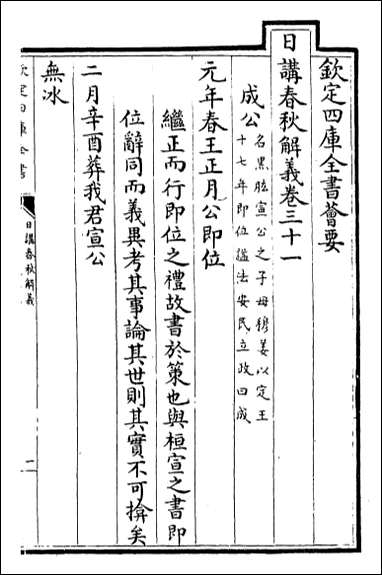 欽定四庫全書薈要
日講春秋解義卷三十一
成公名黑肱宣公之子母穆姜以定王
十七年即位諡法安民立政曰成
元年春王正月公即位
繼正而行即位之禮故書於策也與桓宣之書即
位辭同而義異考其事論其世則其實不可揜矣
二月辛酉葬我君宣公
無冰
欽定四庫全書
日講春秋解義
一